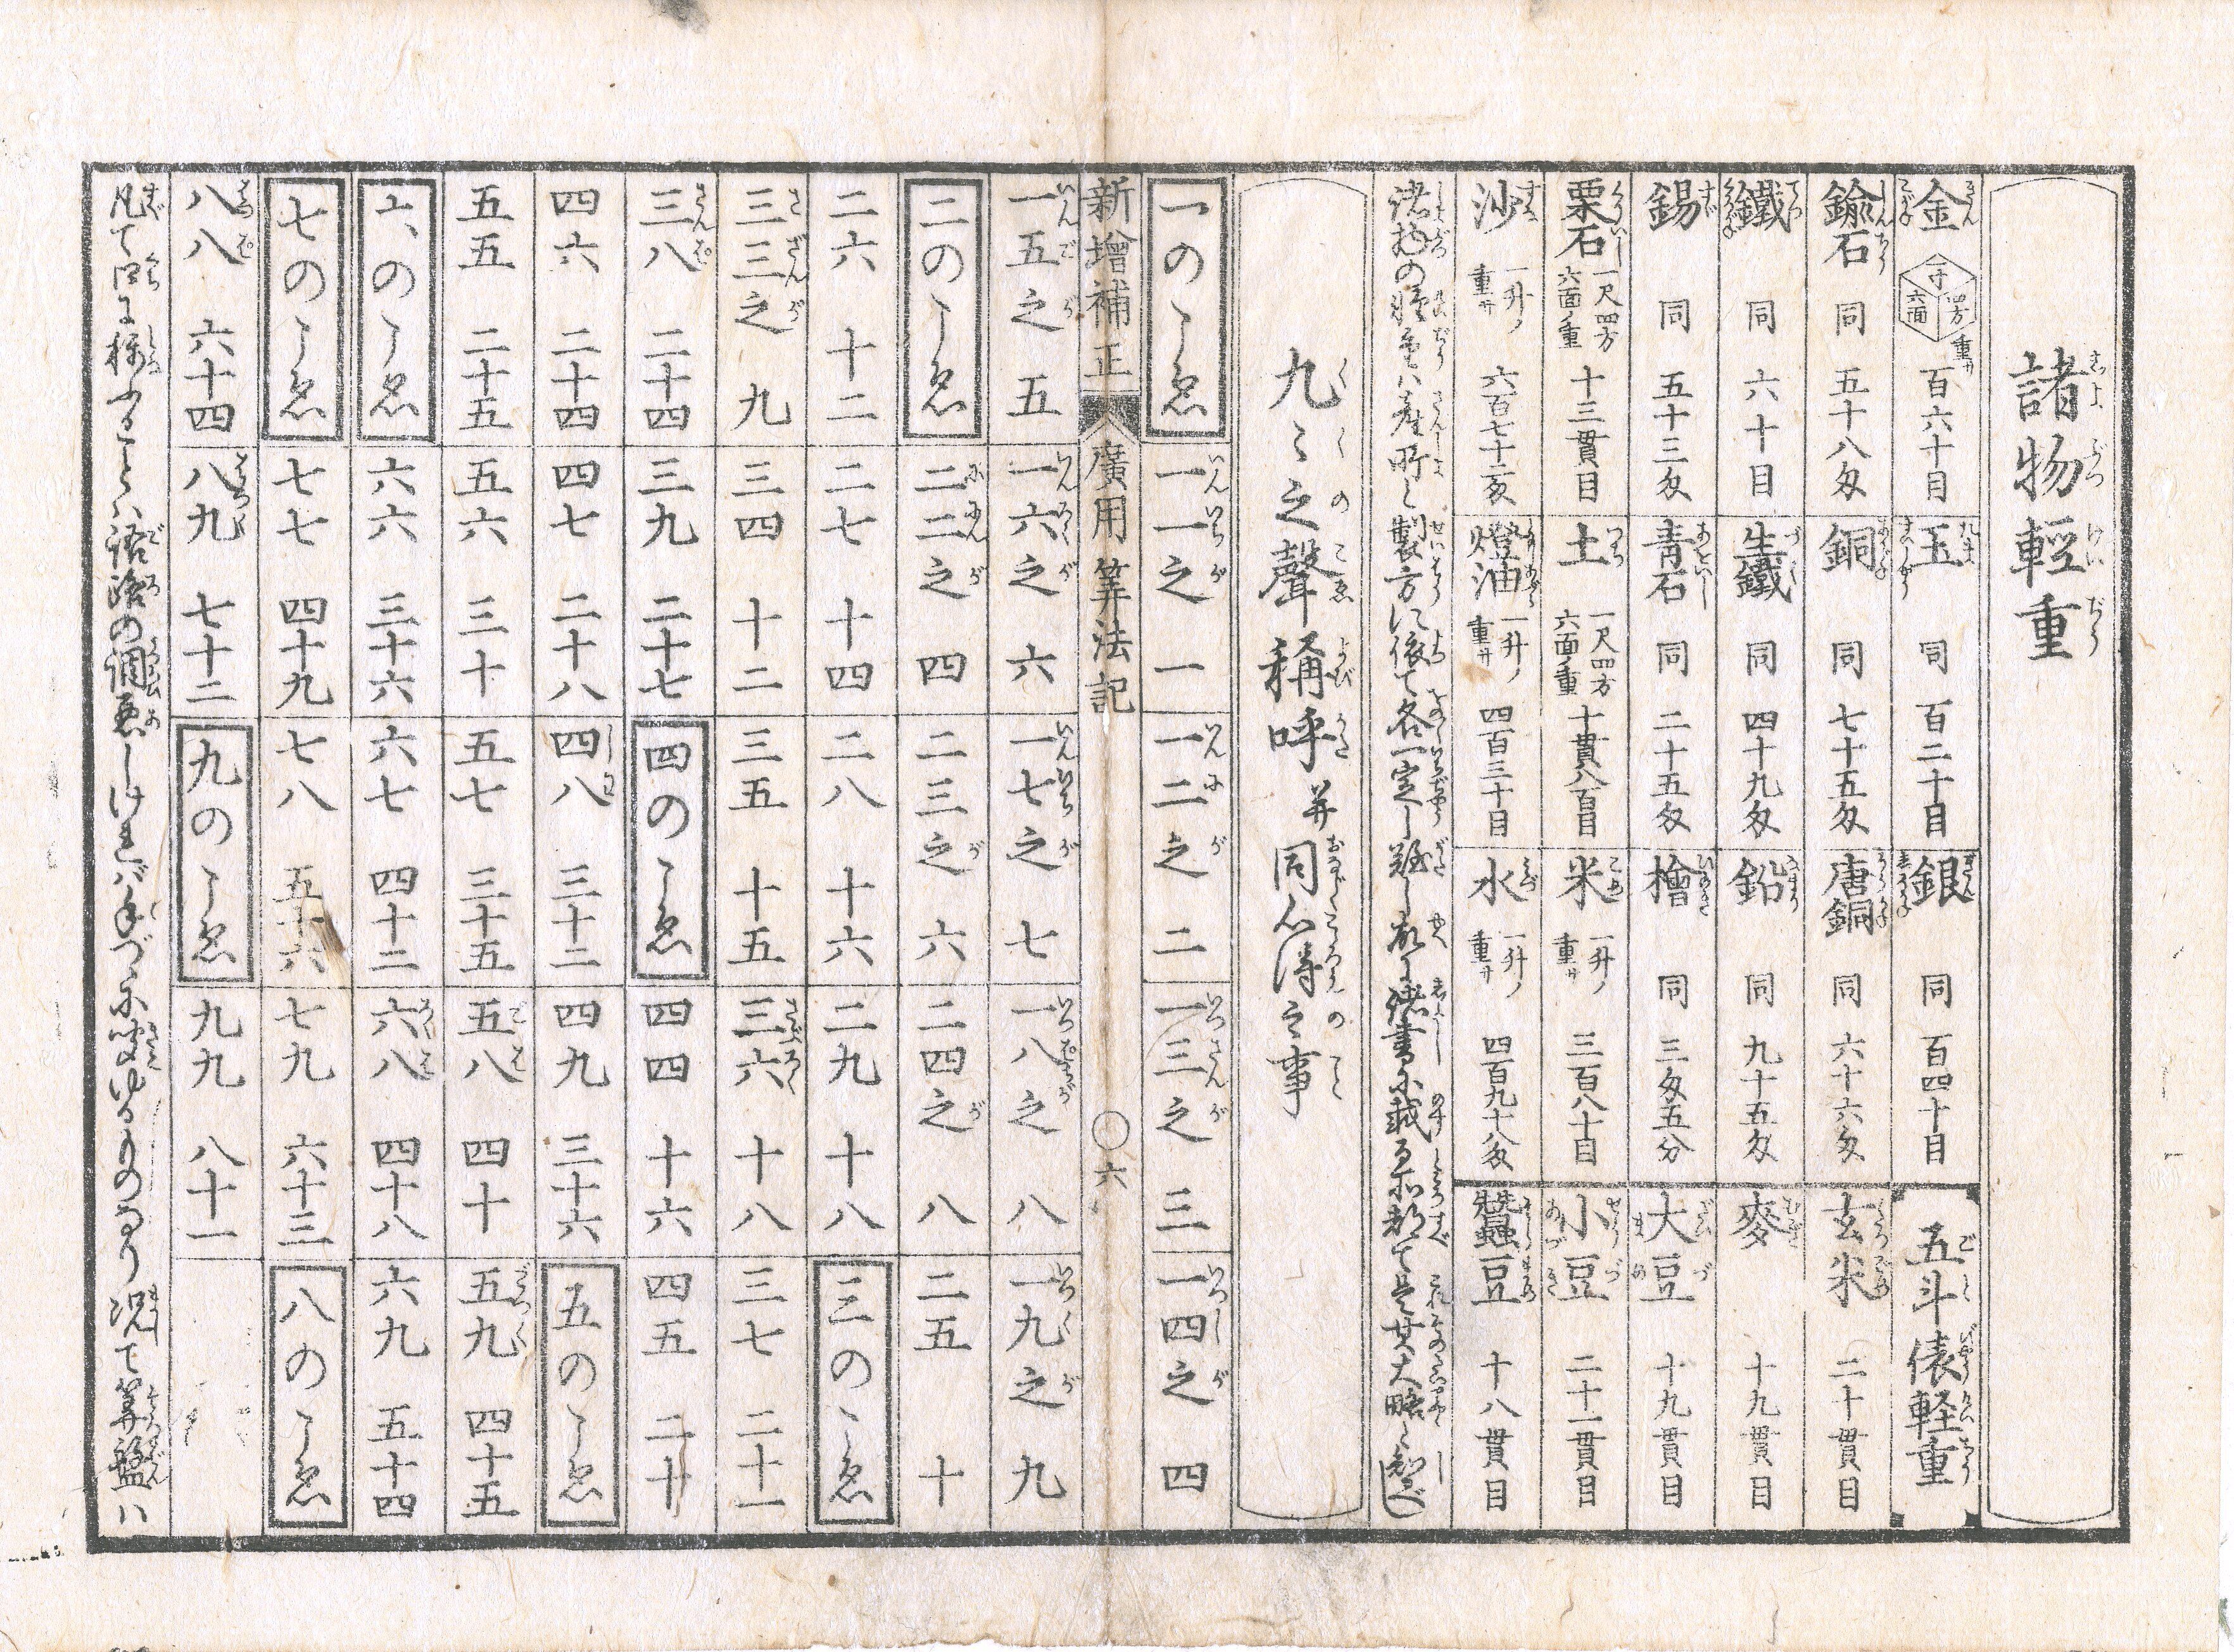 諸物輕重
金 一寸四方六面 重サ 百六十目
玉 同 百二十目
銀 同 百四十目
五斗俵軽重
鍮石 同 五十八匁
銅 同 七十五匁
唐銅 同 六十六匁
玄米 二十貫目
鐵 同 六十目
生鐵 同 四十九匁
鉛 同 九十五匁
麥 十九貫目
錫 同 五十三匁
青石 同 二十五匁
檜 同 三匁五分
大豆 十九貫目
栗石 一尺四方六面ノ重 十三貫目
土 一尺四方六面ノ重 十貫八百目
米 一升ノ重サ 三百八十目
小豆 二十一貫目
沙 一升ノ重サ 六百七十二匁
燈油 一升ノ重サ 四百三十目
水 一升ノ重サ 四百九十八匁
蠶豆 十八貫目
諸物の軽重ハ産所と製方に依て各一定し難し故に諸書に載る所都て是其大略と知べし
九々之聲稱呼 并 同心得之事
一のこゑ
一一之 一
一二之 二
一三之 三
一四之 四
新增補正 廣用筭法記 ○六
一五之 五
一六之 六
一七之 七
一八之 八
一九之 九
二のこゑ
二二之 四
二三之 六
二四之 八
二五 十
二六 十二
二七 十四
二八 十六
二九 十八
三のこゑ
三三之 九
三四 十二
三五 十五
三六 十八
三七 二十一
三八 二十四
三九 二十七
四のこゑ
四四 十六
四五 二十
四六 二十四
四七 二十八
四八 三十二
四九 三十六
五のこゑ
五五 二十五
五六 三十
五七 三十五
五八 四十
五九 四十五
六のこゑ
六六 三十六
六七 四十二
六八 四十八
六九 五十四
七のこゑ
七七 四十九
七八 五十六
七九 六十三
八のこゑ
八八 六十四
八九 七十二
九のこゑ
九九 八十一
凡て口に稱ふることハ語路の調悪しけれバ手づに聞ゆるものなり 况て筭盤ハ